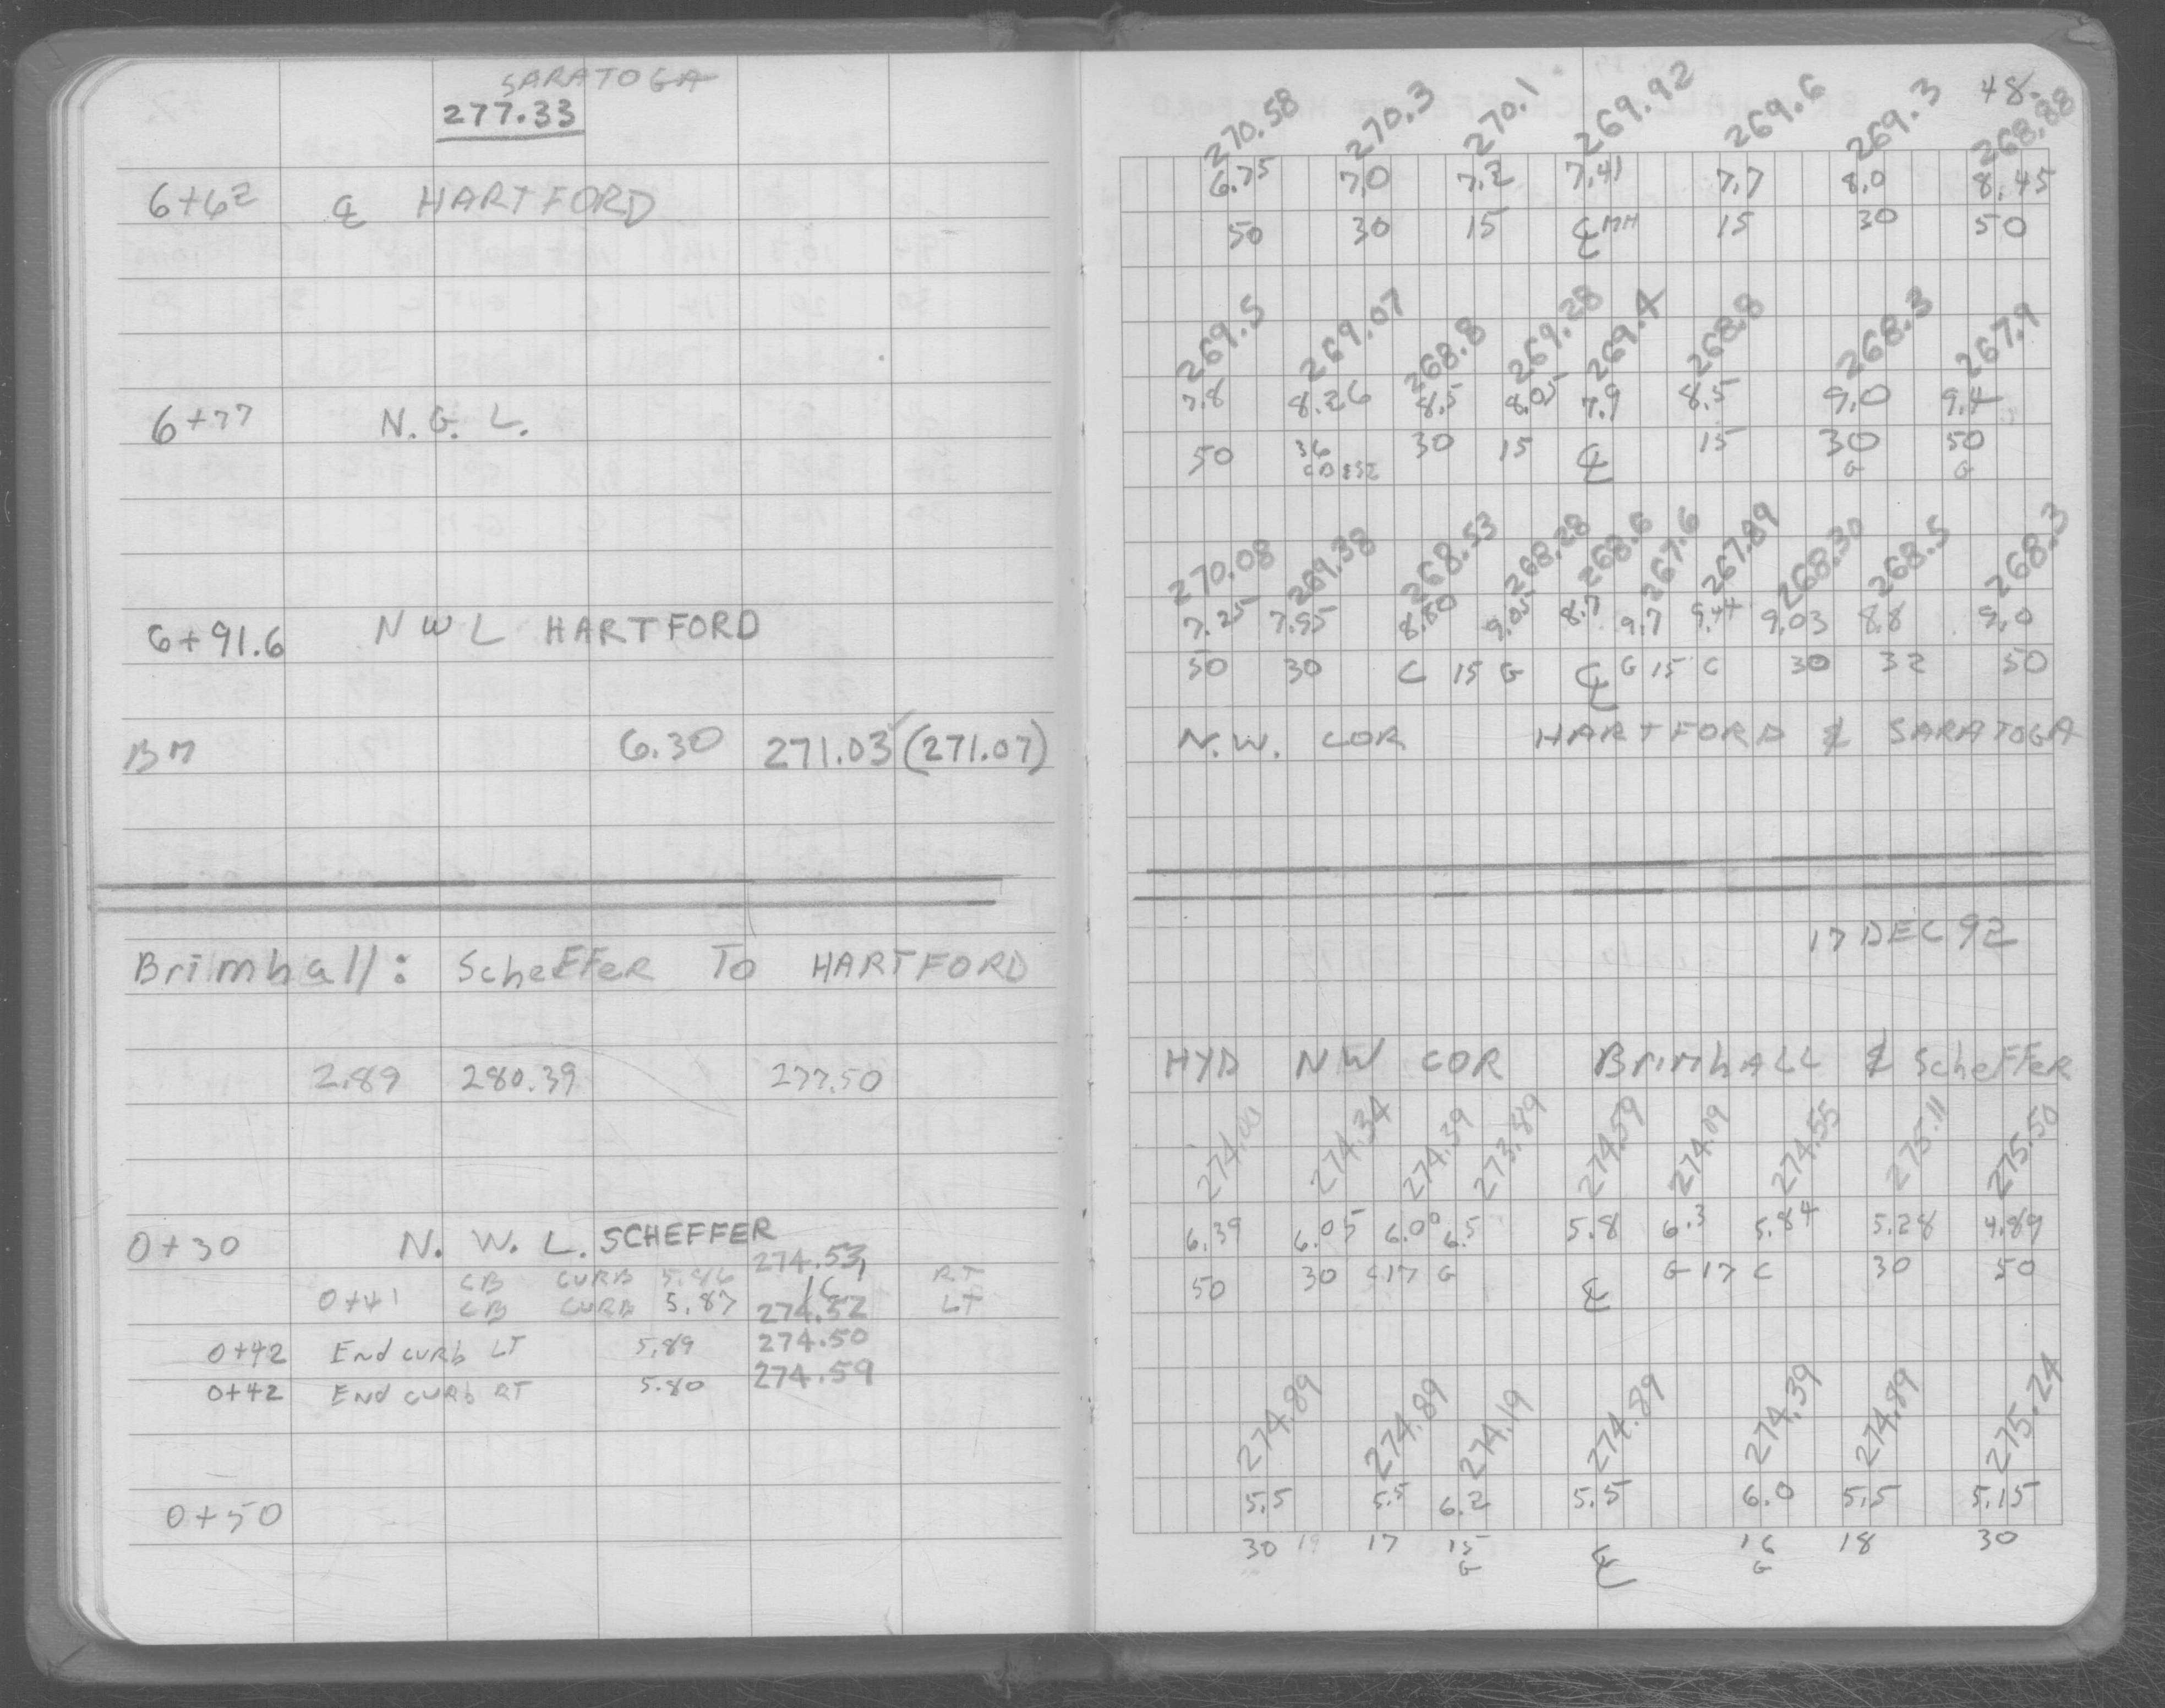 SARATOGA
277.33
6+62 ℄ HARTFORD
6+77 N.G.L.
6+91.6 NWL HARTFORD
BM 6.30 271.03 (271.07)
Brimhall: Scheffer To HARTFORD
2.89 280.39 277.50
0+30 N. W. L. SCHEFFER
CB CURB 5.86 274.53 RT
0+41 CB CURB 5.87 274.52 LT
0+42 End curb LT 5.89 274.50
0+42 End curb RT 5.80 274.59
0+50
48.
270.58 270.3 270.1 269.92 269.6 269.3 268.88
6.75 7.0 7.2 7.41 7.7 8.0 8.45
50 30 15 ℄ MH 15 30 50
269.5 269.07 268.8 269.28 269.4 268.8 268.3 267.9
7.8 8.26 8.5 8.05 7.9 8.5 9.0 9.4
50 36 30 15 ℄ 15 30 50
G G
270.08 269.38 268.53 268.28 268.6 267.6 267.89 268.30 268.5 268.3
7.25 7.95 8.80 9.05 8.7 9.7 9.44 9.03 8.8 9.0
50 30 C 15 G ℄ G 15 C 30 32 50
N.W. COR HARTFORD & SARATOGA
17 DEC 92
HYD NW COR BrimhALL & Scheffer
274.00 274.34 274.39 273.89 274.59 274.09 274.55 275.11 275.50
6.39 6.05 6.00 6.5 5.8 6.3 5.84 5.28 4.89
50 30 C 17 G ℄ G 17 C 30 50
274.89 274.89 274.19 274.89 274.39 274.89 275.24
5.5 5.5 6.2 5.5 6.0 5.5 5.15
30 19 17 15 ℄ 16 18 30
G G